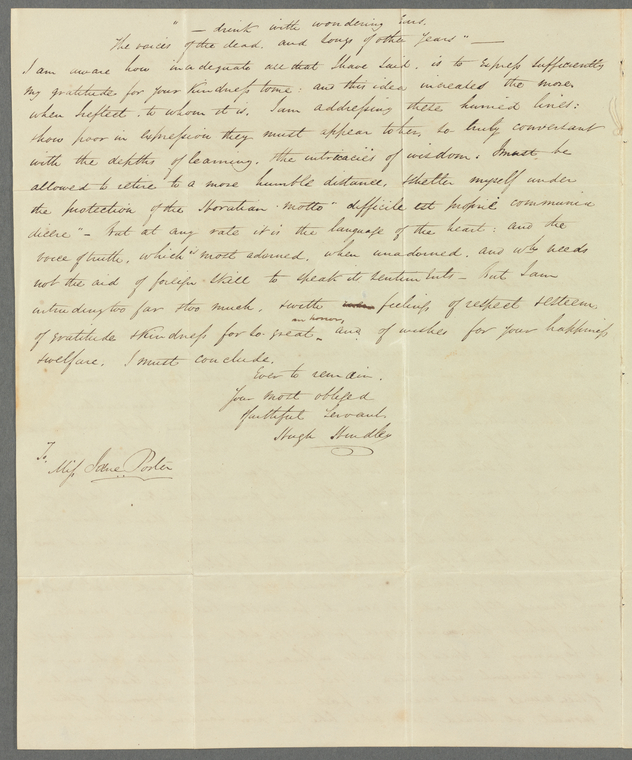 " — drink with wondering Ears,
The voices of the dead, and songs of other Years" —
I am aware how inadequate all that I have said, is to express sufficiently
my gratitude for your kindness to me: and this idea increases the more
when I reflect, to whom it is, I am addressing these hurried lines:
& how poor in expression they must appear to her, so truly conversant
with the depths of learning, & the intricacies of wisdom. I must be
allowed to retire to a more humble distance, & shelter myself under
the protection of the Horatian motto "difficile est propriè communia
dicere" — but at any rate it is the language of the heart: and the
voice of truth, which "is most adorned, when unadorned, and wh. needs
not the aid of foreign skill to speak its sentiments — But I am
intruding too far & too much, & with feelings of respect & esteem,
of gratitude & kindness for so great an honor, and of wishes for your happiness
& welfare, I must conclude.
Ever to remain,
Your most obliged
& faithful Servant,
Hugh Hindley
To
Miss Jane Porter